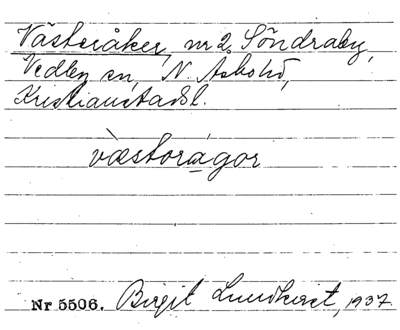 Västeråker, nr 2, Söndraby,
Vedby sn, N. Åsbohd,
Kristianstads l.
væstorågor
Nr 5506. Birgit Lundkvist, 1937